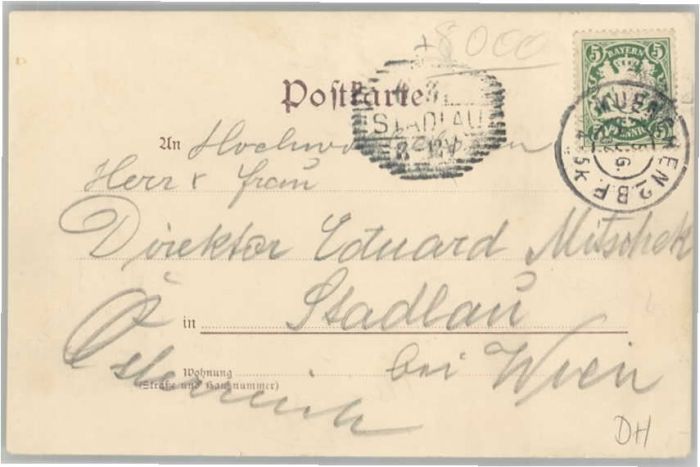 +8000
5 BAYERN 5
PFENNIG
Postkarte
STADLAU
MUENCHEN 2 B.F.
An
Herr & Frau
Direktor Eduard Mitschek
in Stadlau
bei Wien
Österreich
Wohnung
(Straße und Hausnummer)
DH